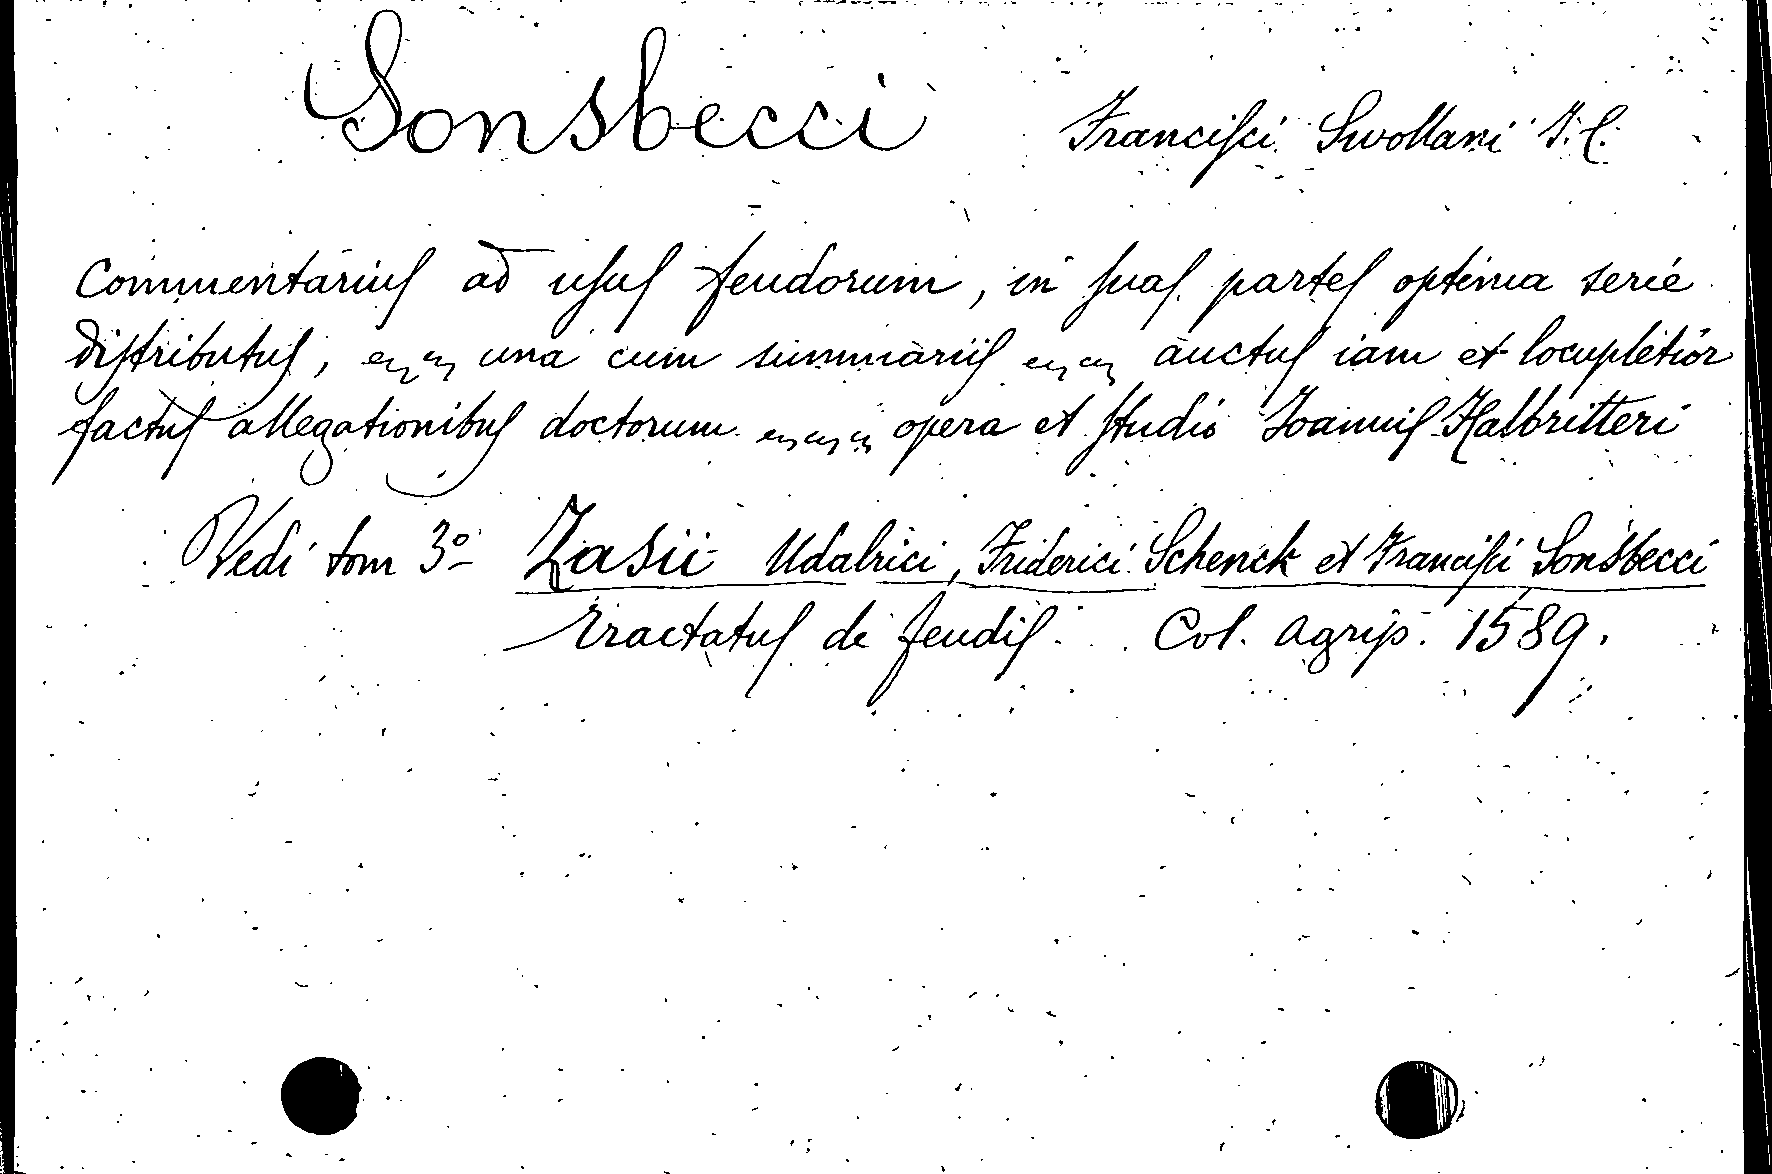 Sonsbecci Franciſci Swollani I. C.
Commentariuſ ad uſuſ feudorum, in ſuaſ parteſ optima serie
diſtributuſ, una cum summariiſ auctuſ iam et locupletior
factuſ allegationibuſ doctorum opera et ſtudio Joanniſ Halbritteri
Vedi tom 3º Zasii Udalrici, Friderici Schenck et Franciſci Sonsbecci
tractatuſ de feudiſ. Col. Agrip. 1589.